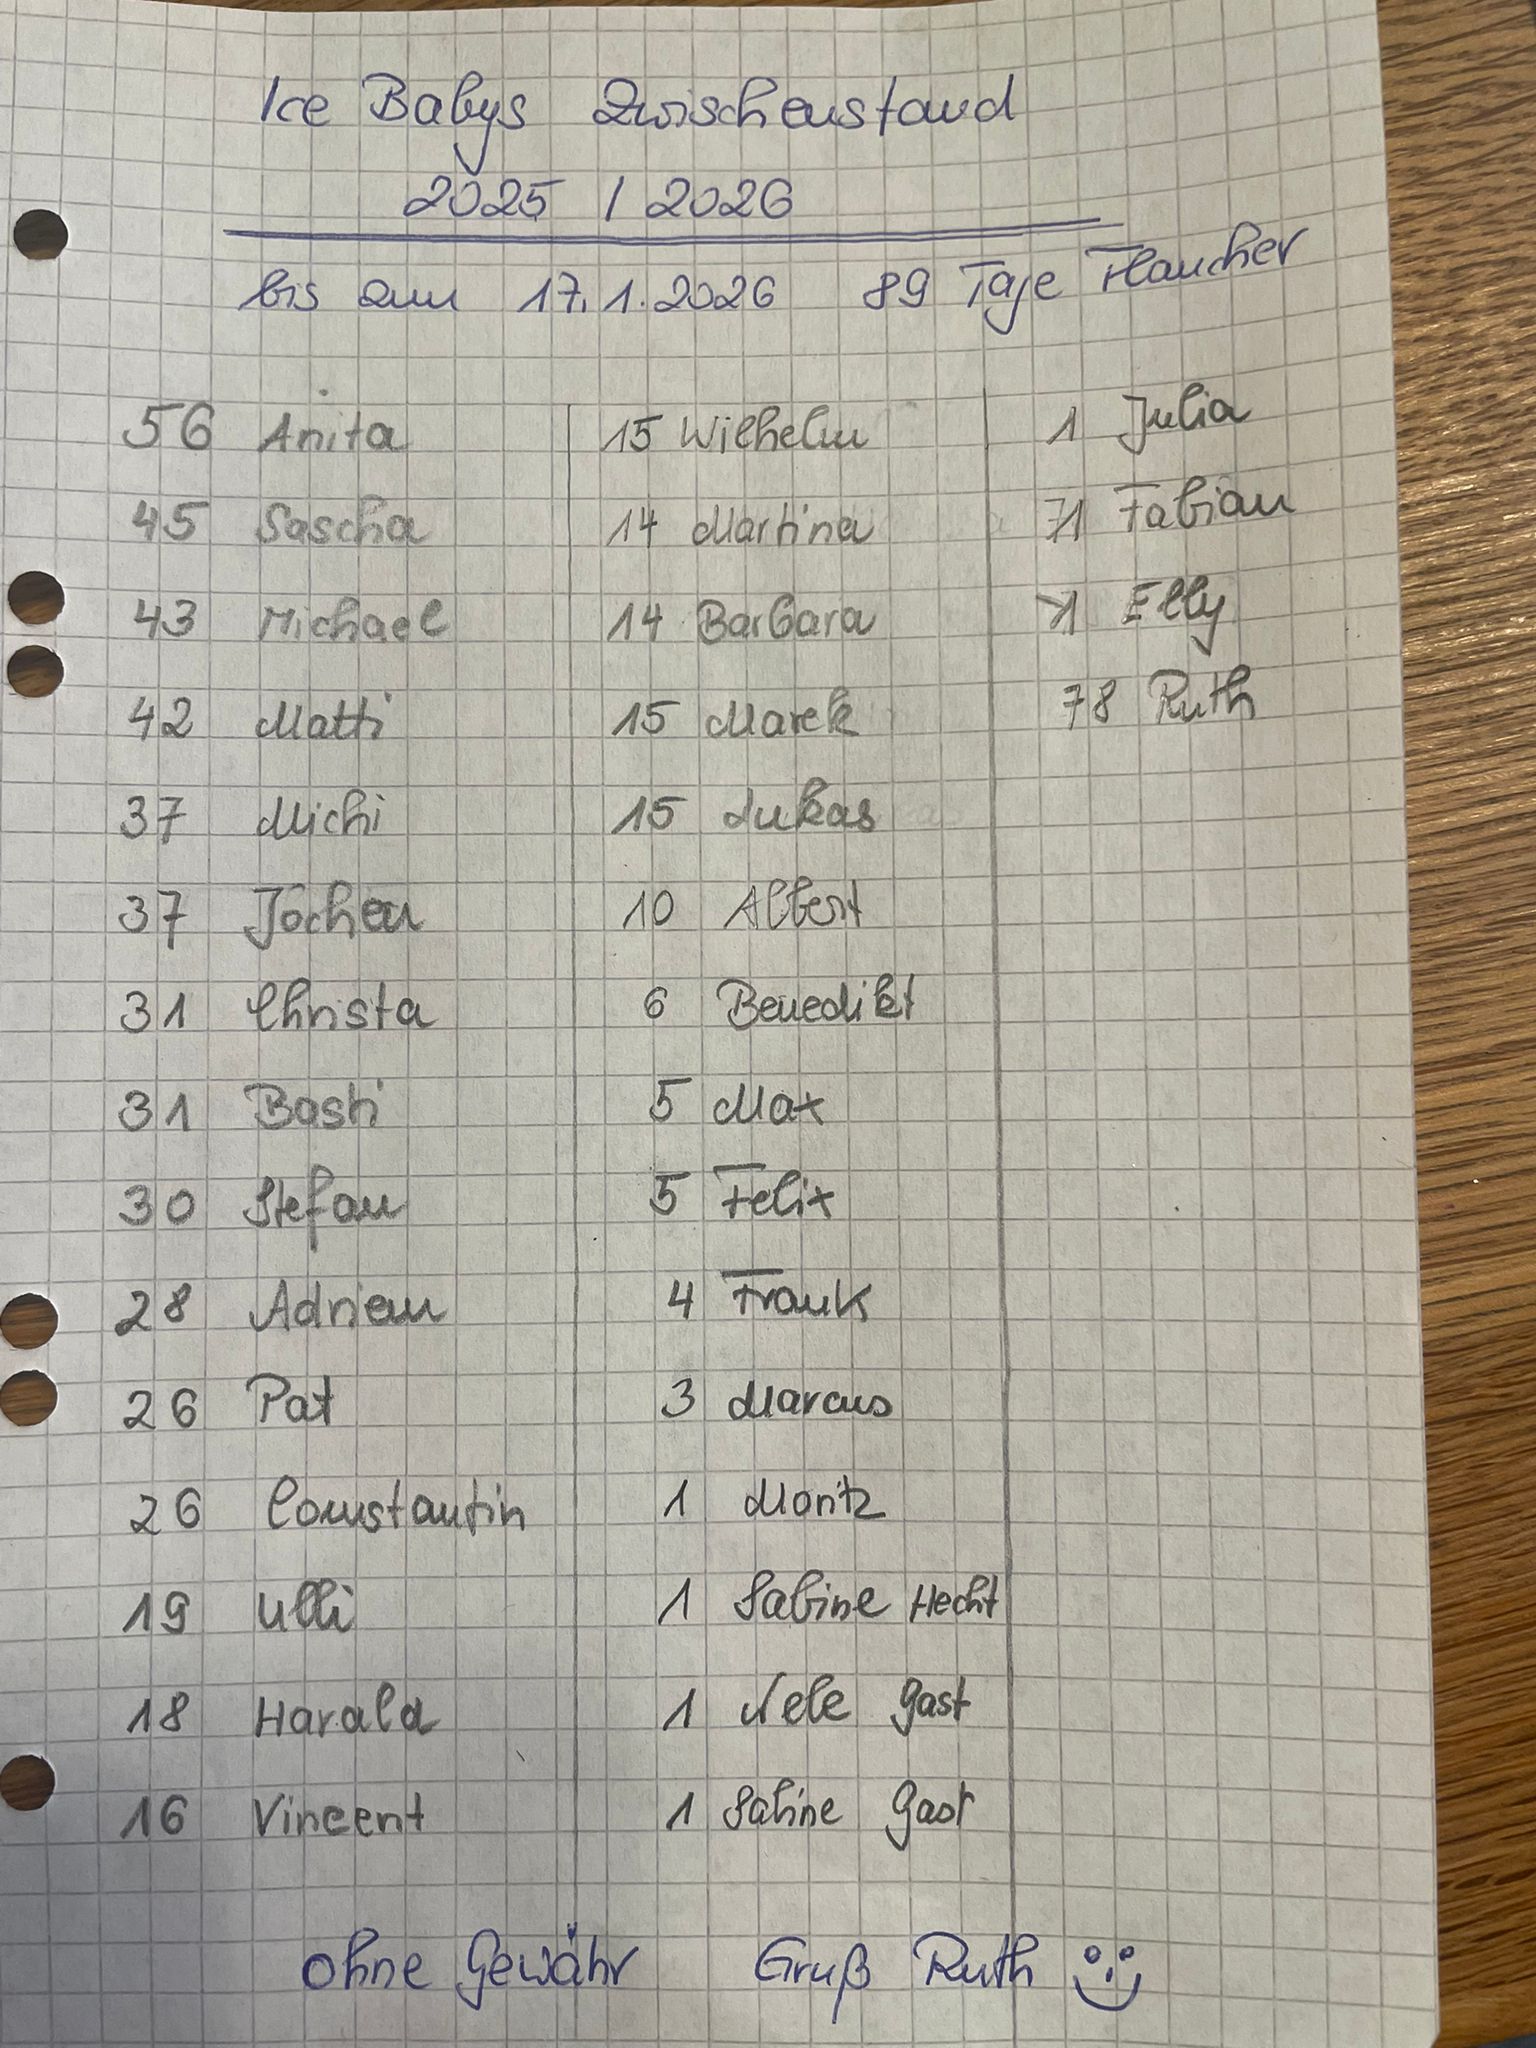 Ice Babys Zwischenstand
2025 / 2026
bis zum 17.1.2026 89 Tage Flaucher
56 Anita
45 Sascha
43 Michael
42 Matti
37 Michi
37 Jochen
31 Christa
31 Basti
30 Stefan
28 Adrian
26 Pat
26 Constantin
19 Ulli
18 Harald
16 Vincent
15 Wilhelm
14 Martina
14 Barbara
15 Marek
15 Lukas
10 Albert
6 Benedikt
5 Max
5 Felix
4 Frank
3 Marcus
1 Moritz
1 Sabine Hecht
1 Nele Gast
1 Sabine Gast
1 Julia
1 Fabian
1 Elly
78 Ruth
ohne Gewähr Gruß Ruth